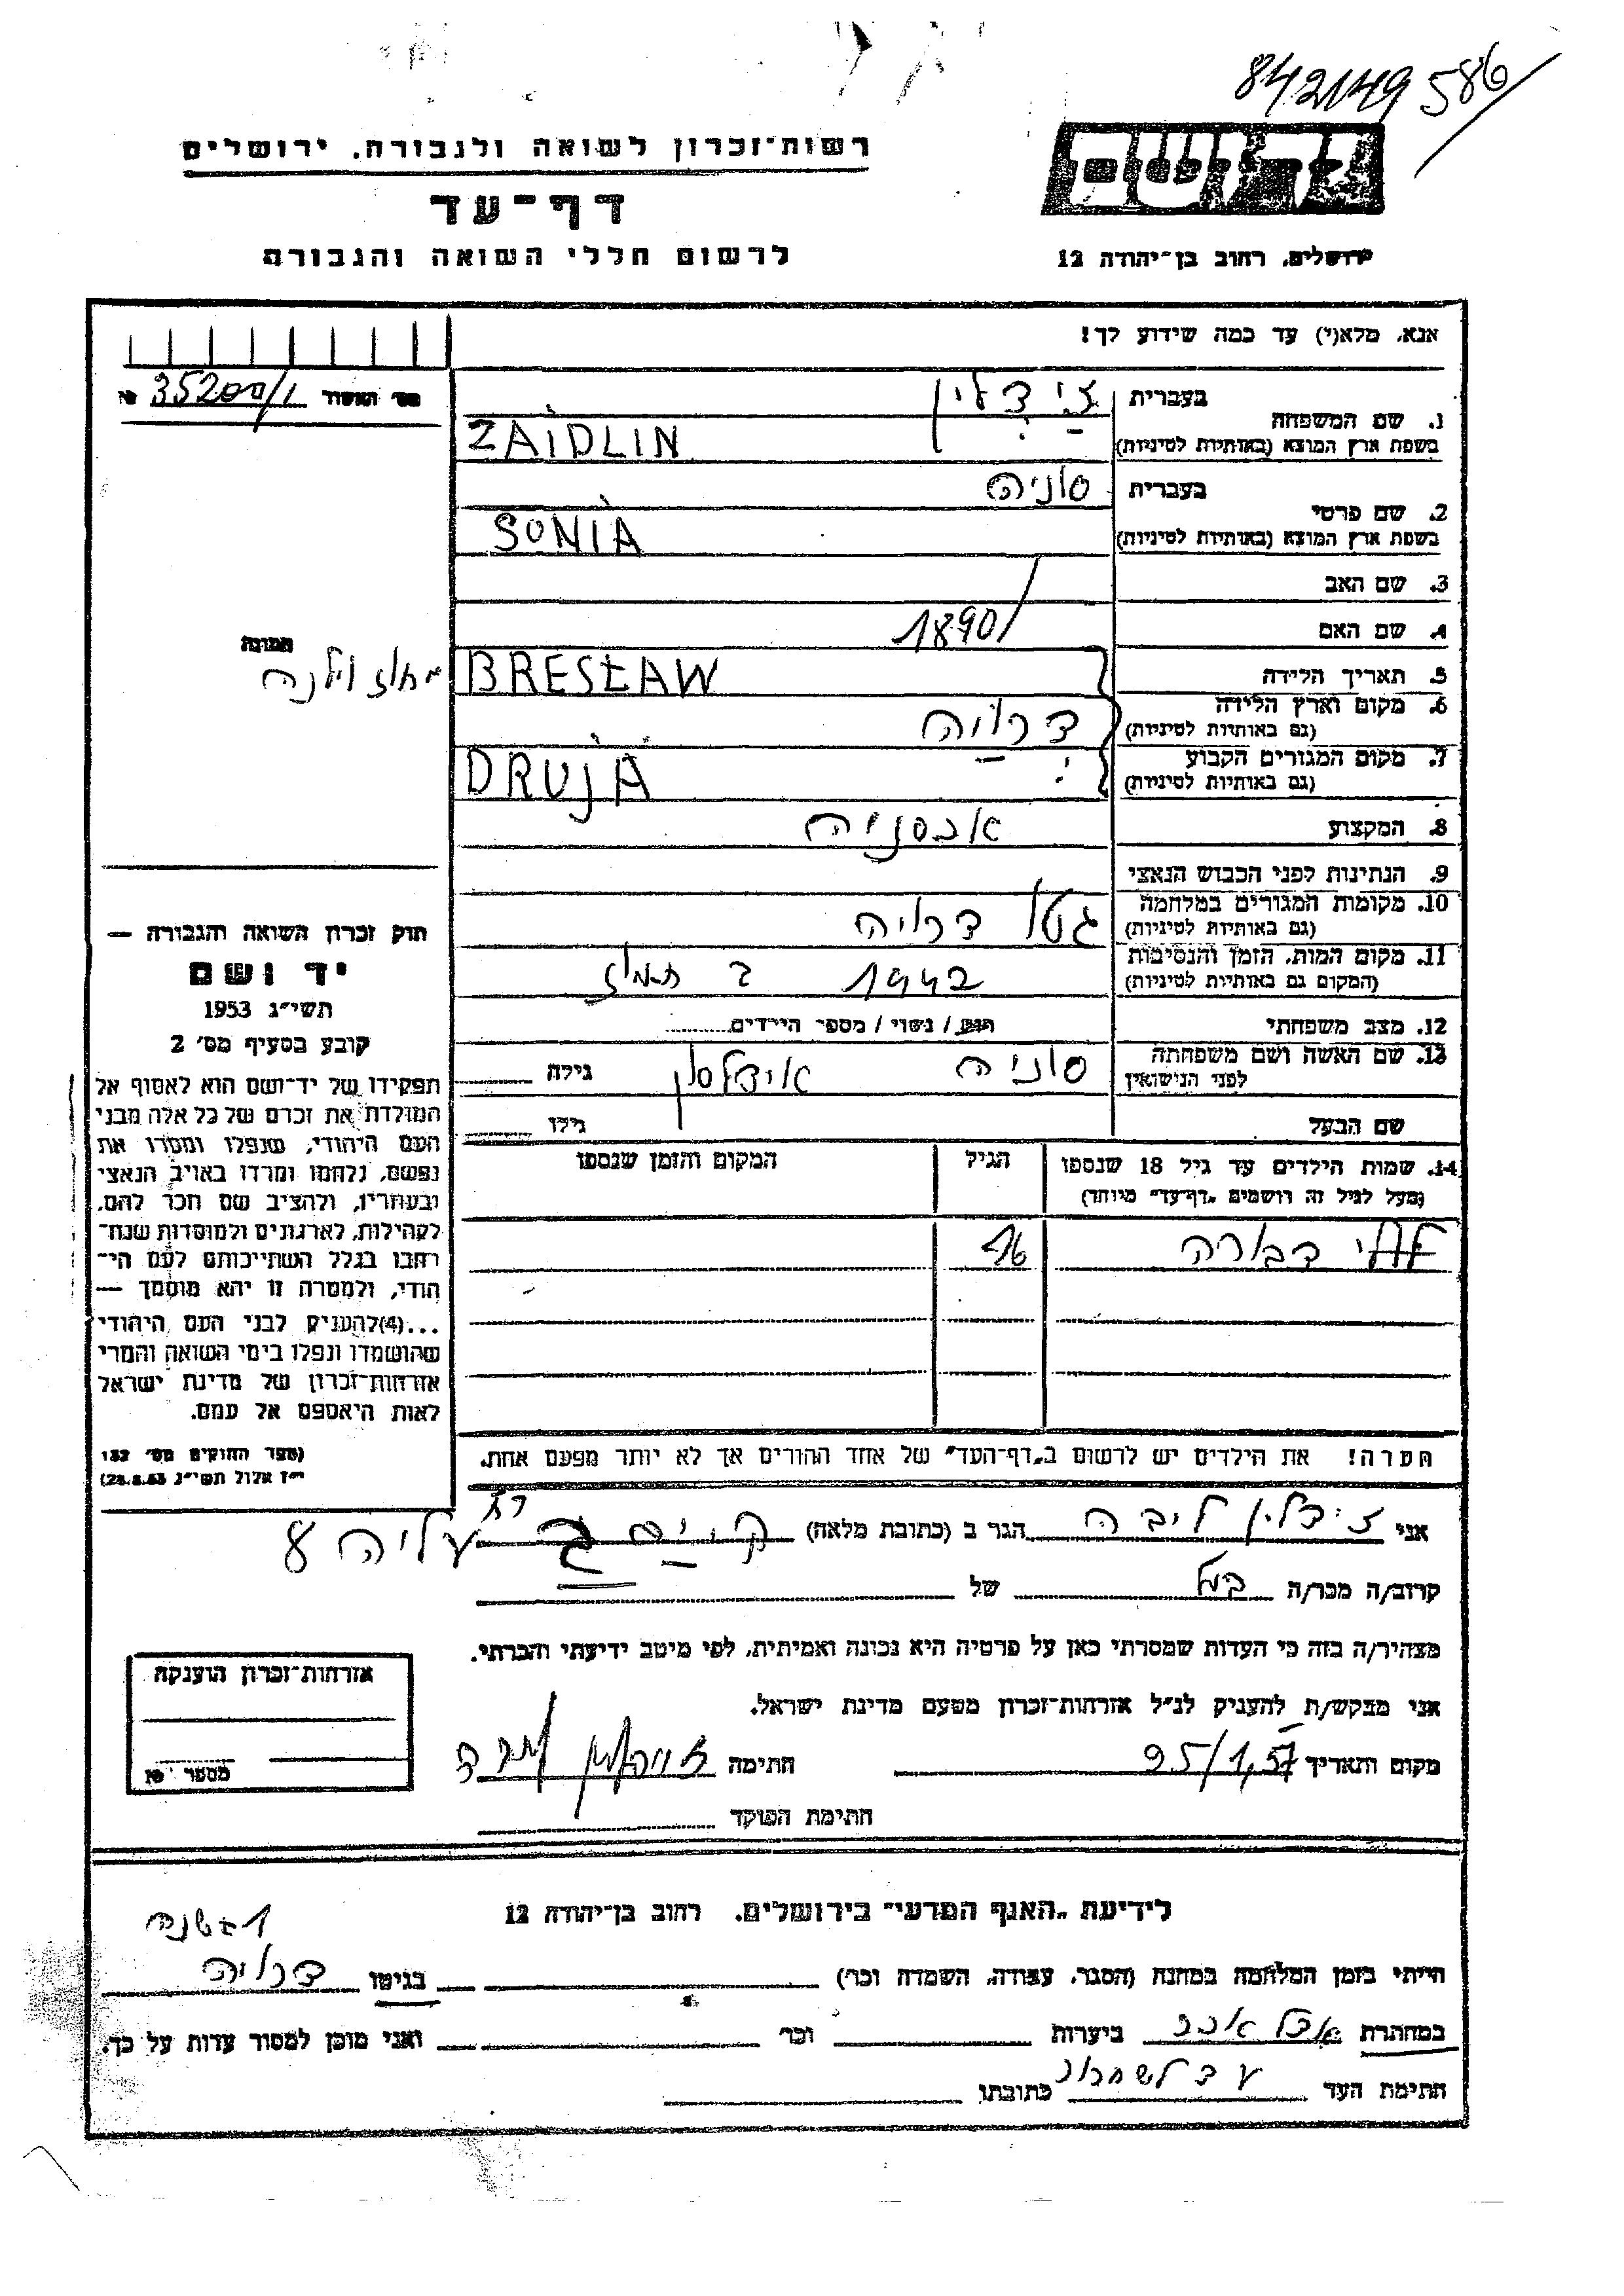 842149 586
רשות־זכרון לשואה ולגבורה, ירושלים
דף־עד
לרשום חללי השואה והגבורה
ירושלים, רחוב בן־יהודה 12
אנא, מלא(י) עד כמה שידוע לך!
מס׳ האשור 35200/1 №
1. שם המשפחה בעברית זיידלין
בשפת ארץ המוצא (באותיות לטיניות) ZAIDLIN
2. שם פרטי בעברית סוניה
בשפת ארץ המוצא (באותיות לטיניות) SONIA
3. שם האב
4. שם האם
1890
5. תאריך הלידה
BRESŁAW
תמונה
מחוז וילנה
6. מקום וארץ הלידה
(גם באותיות לטיניות)
דרויה
7. מקום המגורים הקבוע
(גם באותיות לטיניות)
DRUJA
8. המקצוע אכסניה
9. הנתינות לפני הכבוש הנאצי
10. מקומות המגורים במלחמה
(גם באותיות לטיניות) גטו דרויה
11. מקום המות, הזמן והנסיבות
(המקום גם באותיות לטיניות) 1942 ב תמוז
12. מצב משפחתי רווק / נשוי / מספר הילדים
13. שם האשה ושם משפחתה
לפני הנישואין סוניה אידלסון גילה
שם הבעל גילו
14. שמות הילדים עד גיל 18 שנספו
(מעל לגיל זה רושמים „דף־עד״ מיוחד)
הגיל
המקום והזמן שנספו
דבורה 16
הערה! את הילדים יש לרשום ב„דף־העד״ של אחד ההורים אך לא יותר מפעם אחת.
חוק זכרון השואה והגבורה —
יד ושם
תשי״ג 1953
קובע בסעיף מס׳ 2
תפקידו של יד־ושם הוא לאסוף אל
המולדת את זכרם של כל אלה מבני
העם היהודי, שנפלו ומסרו את
נפשם, נלחמו ומרדו באויב הנאצי
ובעוזריו, ולהציב שם וזכר להם,
לקהילות, לארגונים ולמוסדות שנח־
רבו בגלל השתייכותם לעם הי־
הודי, ולמטרה זו יהא מוסמך —
...(4)להעניק לבני העם היהודי
שהושמדו ונפלו בימי השואה והמרי
אזרחות־זכרון של מדינת ישראל
לאות היאספם אל עמם.
(ספר החוקים מס׳ 132
י״ז אלול תשי״ג 28.8.53)
אני זידלין ליבה הגר ב (כתובת מלאה) עליה 8
קרוב/ה מכר/ה של
מצהיר/ה בזה כי העדות שמסרתי כאן על פרטיה היא נכונה ואמיתית, לפי מיטב ידיעתי והכרתי.
אני מבקש/ת להעניק לנ״ל אזרחות־זכרון מטעם מדינת ישראל.
מקום ותאריך 25/1,57 חתימה
חתימת הפוקד
אזרחות־זכרון הוענקה
מספר №
לידיעת „האגף המדעי״ בירושלים, רחוב בן־יהודה 12
הייתי בזמן המלחמה במחנה (הסגר, עבודה, השמדה וכו׳) בגיטו דרויה
במחתרת אצל אכר ביערות וכו׳ ואני מוכן למסור עדות על כך.
עד לשחרור
חתימת העד כתובתו